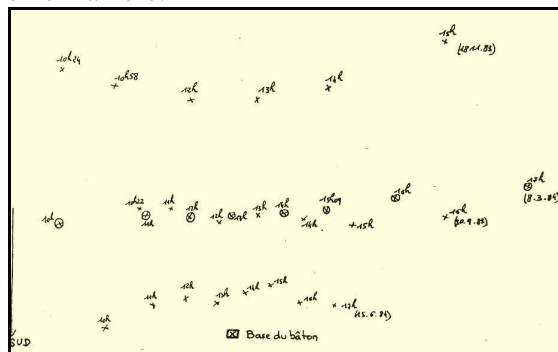 10h24
10h58
12h
13h
14h
15h
(18.11.83)
10h
10h22
11h
11h
12h
12h
13h
13h
14h
14h
15h09
15h
16h
16h
(30.9.83)
17h
(8.3.84)
10h
11h
12h
13h
14h
15h
16h
17h
(15.6.84)
SUD
Base du bâton